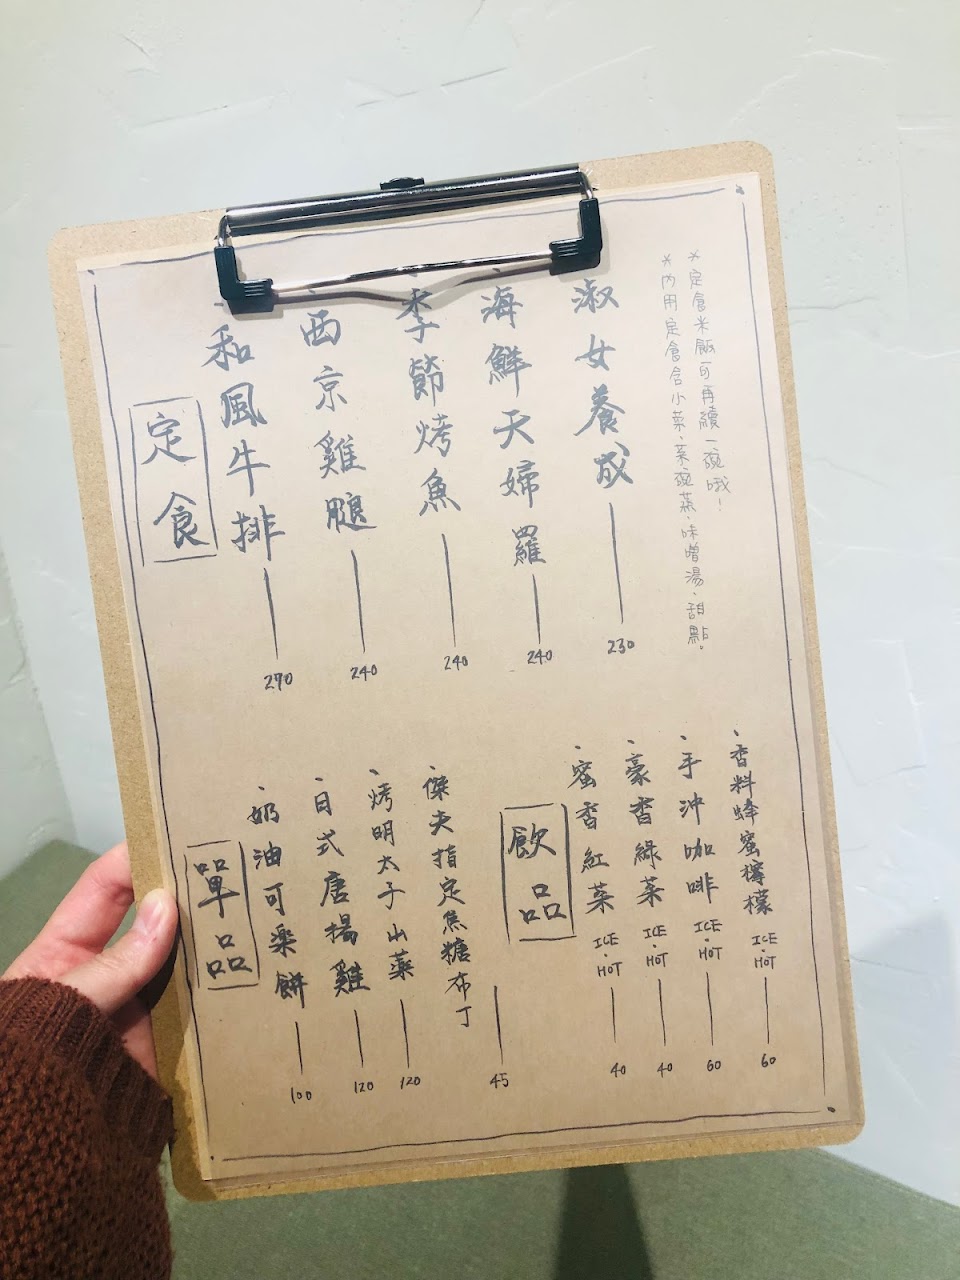 定食
、和風牛排 270
、西京雞腿 240
、季節烤魚 240
、海鮮天婦羅 240
淑女養成 230
*內用定食含小菜、茶碗蒸、味噌湯、甜點.
*定食米飯可再續一碗哦!
單品
、奶油可樂餅 100
、日式唐揚雞 120
、烤明太子山藥 120
、傑夫指定焦糖布丁 45
飲品
、蜜香紅茶 ICE・HOT 40
、豪香綠茶 ICE・HOT 40
、手沖咖啡 ICE・HOT 60
、香料蜂蜜檸檬 ICE・HOT 60